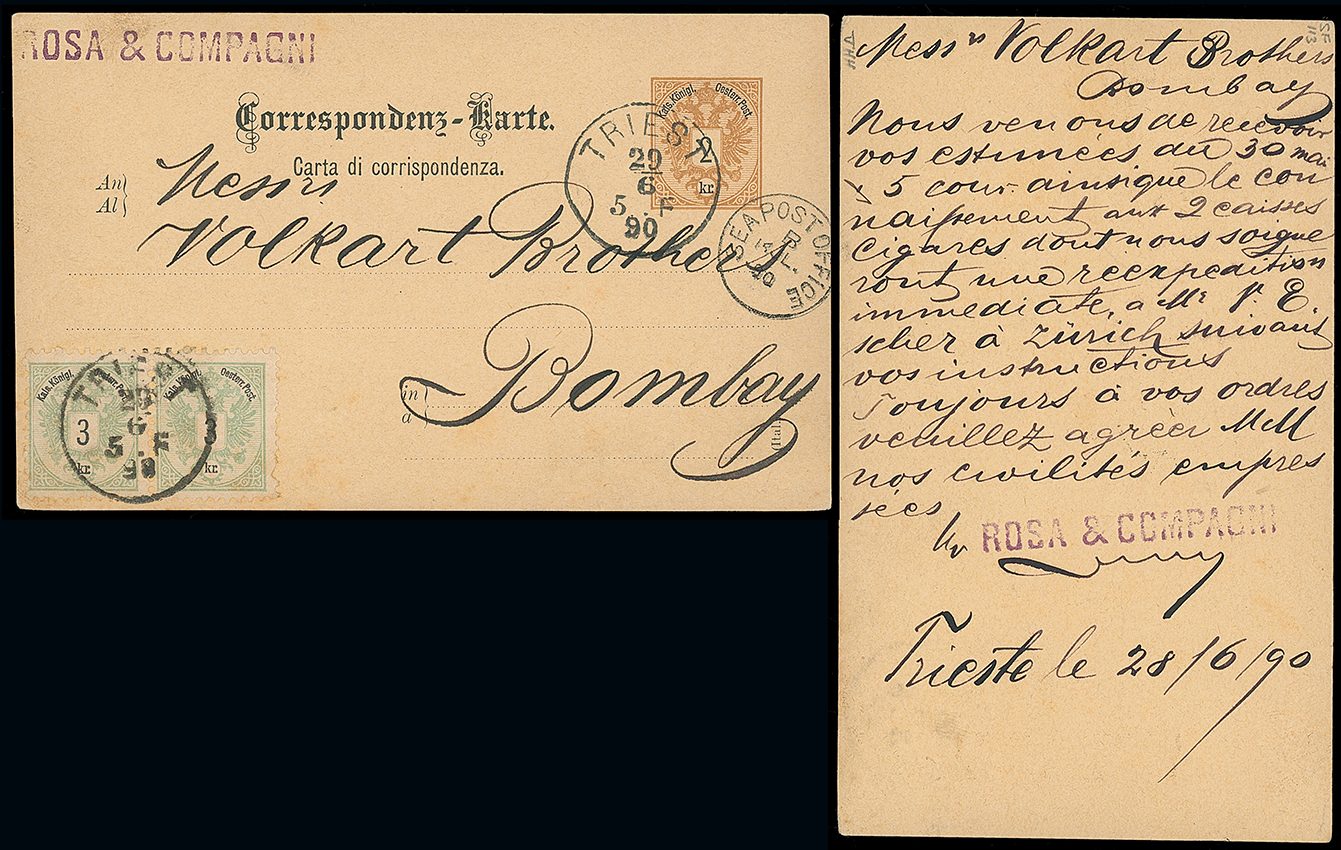 ROSA & COMPAGNI
Correspondenz-Karte.
Carta di corrispondenza.
Kais. Königl. Oesterr. Post.
2
kr.
TRIEST
29
6
5.F
90
SEA POST OFFICE
B
14 JL.
90
An
Al
Messrs
Volkart Brothers
in
a
Bombay
(Ital.)
Kais. Königl. Oesterr. Post.
3
kr.
Kais. Königl. Oesterr. Post.
3
kr.
TRIEST
29
6
5.F
90
Messrs Volkart Brothers
Bombay
Nous venons de recevoir
vos estimées du 30 mai
& 5 cour. ainsi que le con
naissement aux 2 caisses
cigares dont nous soigne
ront une réexpedition
immediate, a Mr V. E.
scher à Zürich suivant
vos instructions
Toujours à vos ordres
veuillez agréer MM
nos civilités empres
sées
ROSA & COMPAGNI
Trieste le 28/6/90